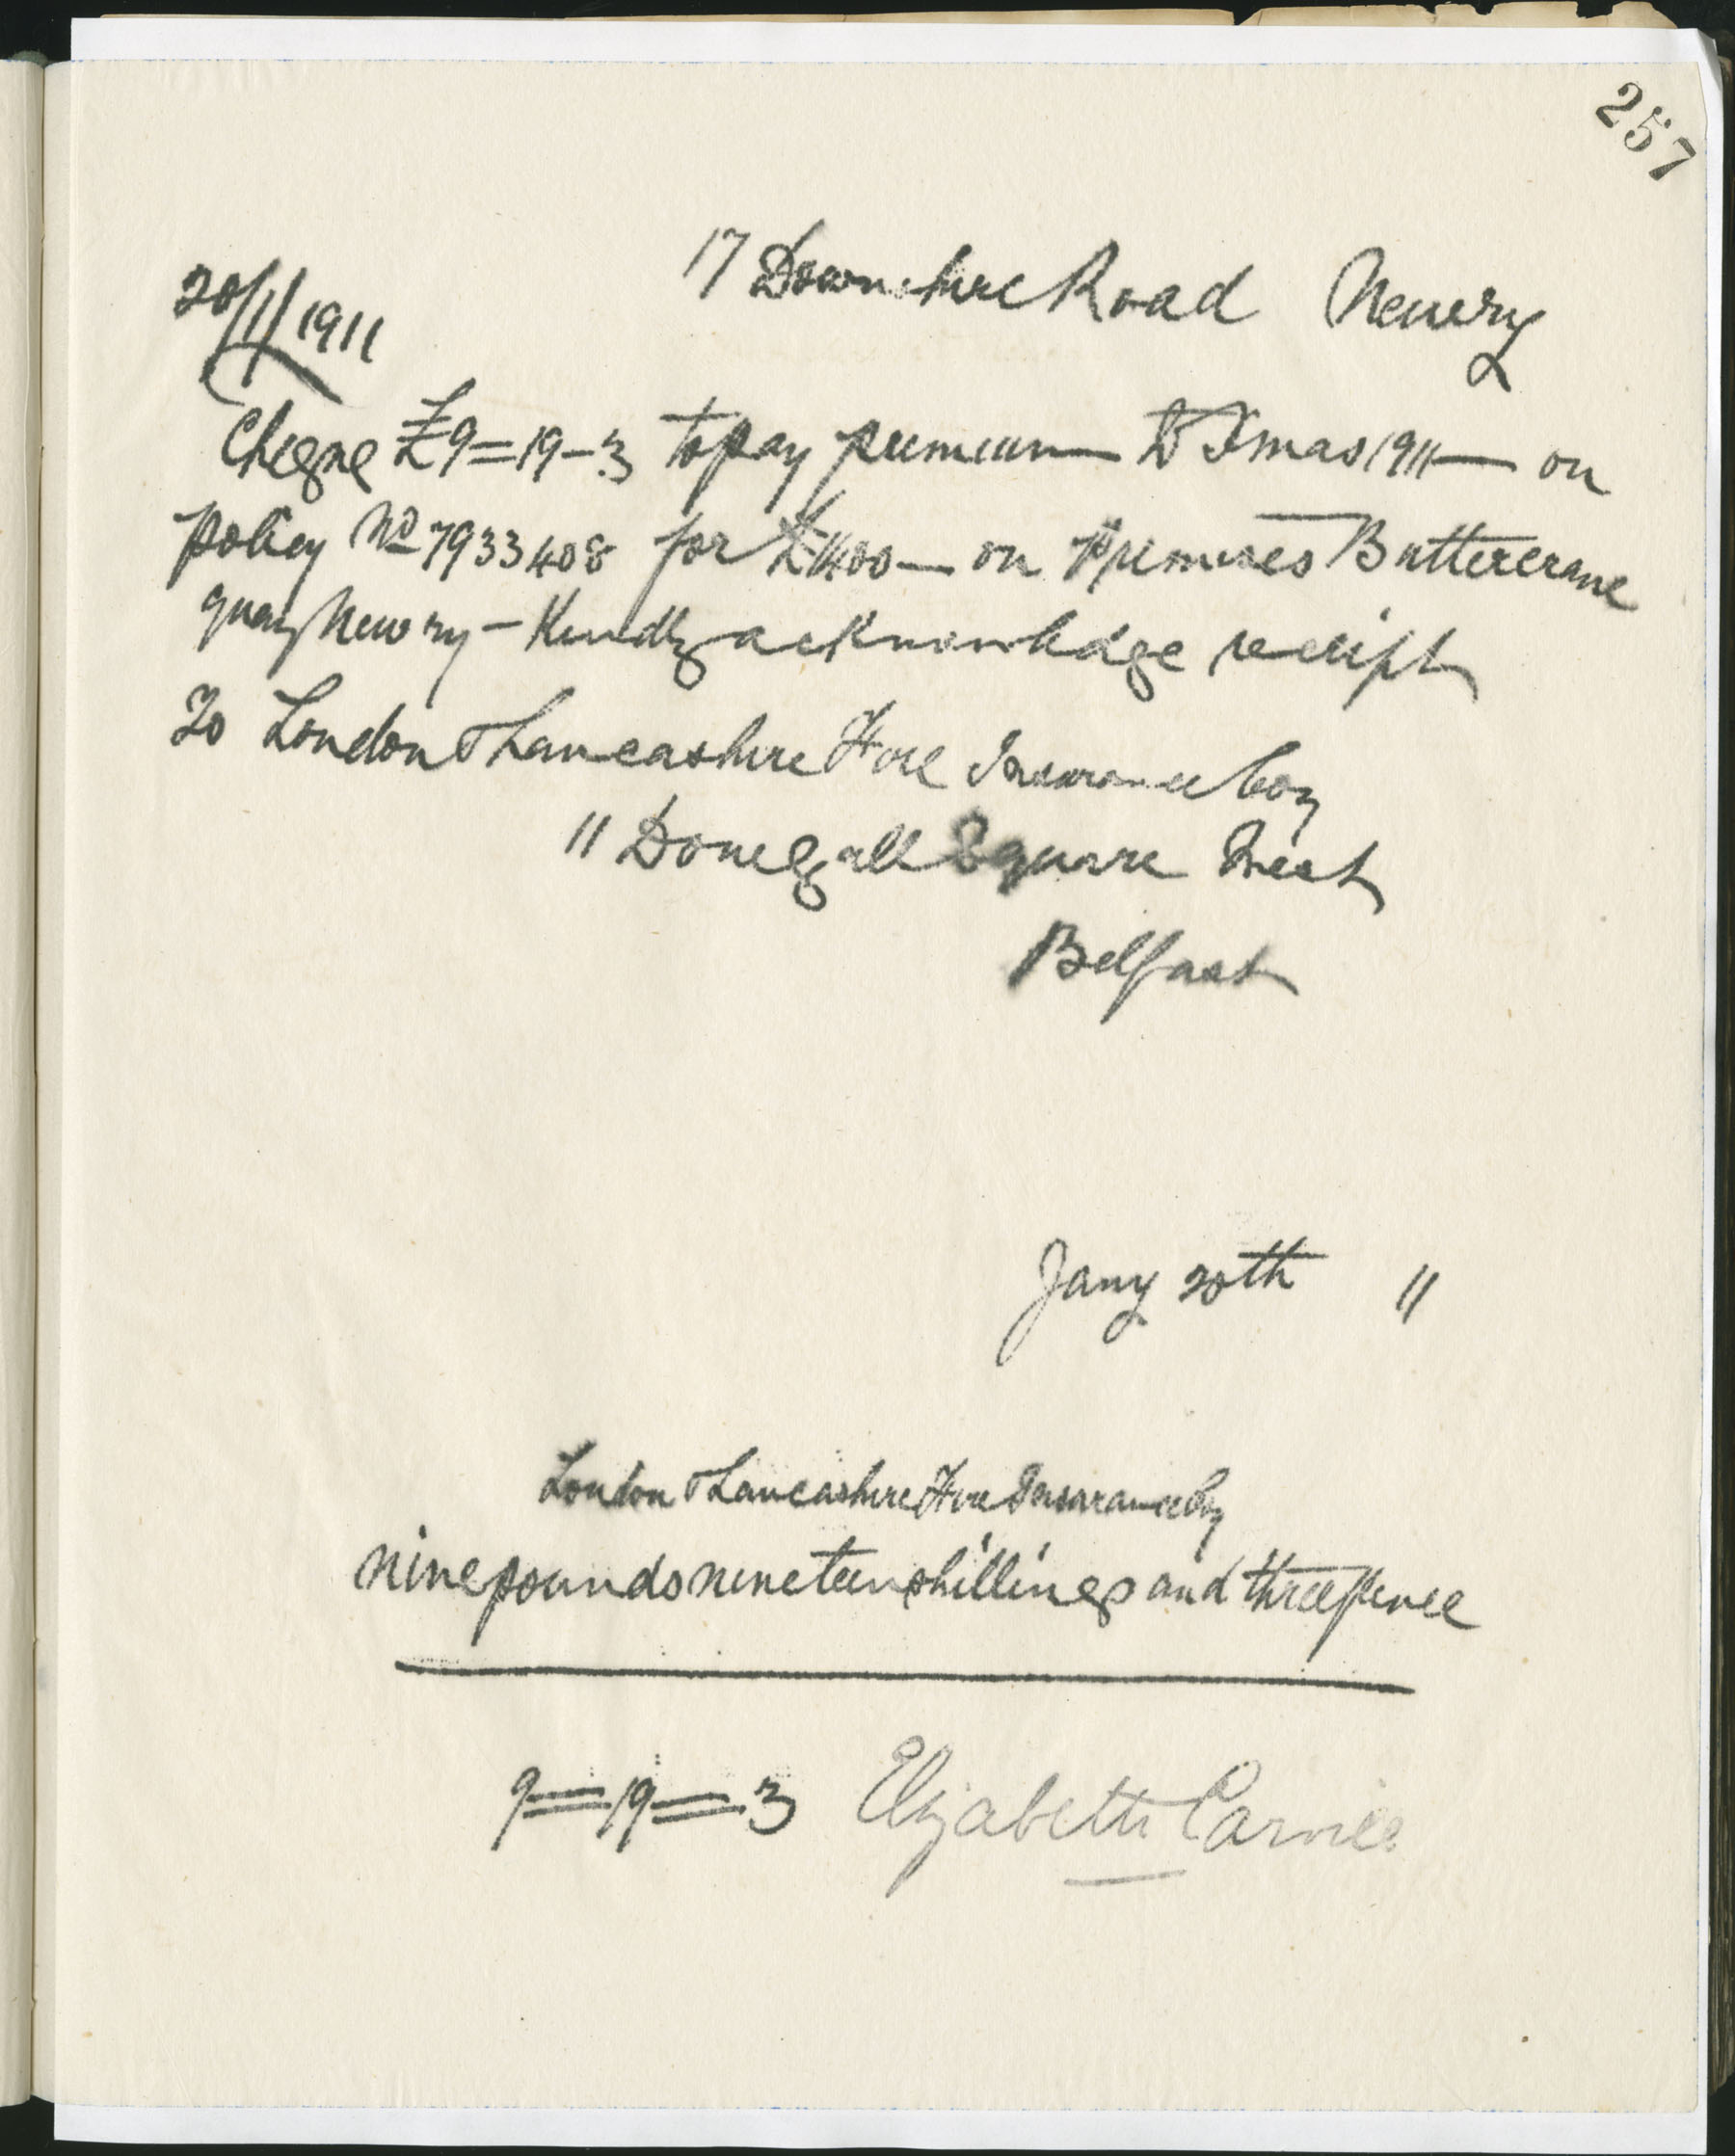 257
17 Downshire Road Newry
20/1/1911
Cheque £9=19-3 to pay premium to Xmas 1911 — on
policy No 7933408 for £1400 — on premises Buttercrane
quay Newry - Kindly acknowledge receipt
To London & Lancashire Fire Insurance Coy
11 Donegall Square West
Belfast
Jany 20th 11
London & Lancashire Fire Insurance Coy
nine pounds nineteen shillings and three pence
9=19=3 Elizabeth